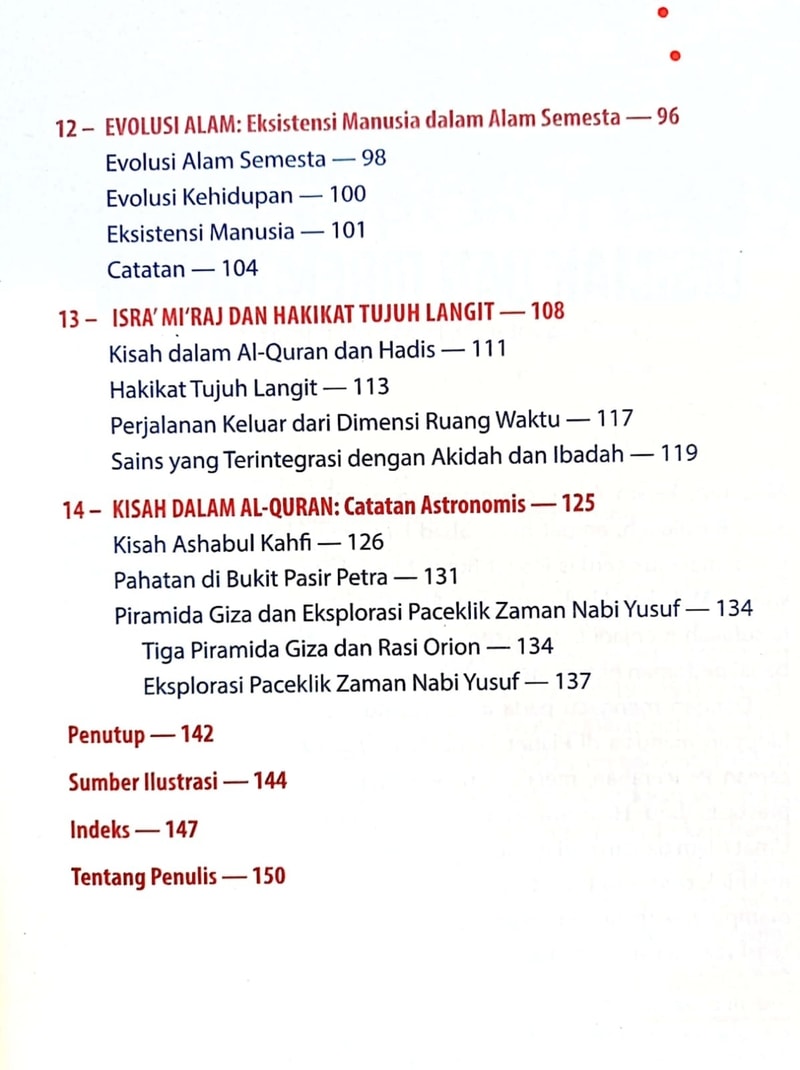 12 – EVOLUSI ALAM: Eksistensi Manusia dalam Alam Semesta — 96
Evolusi Alam Semesta — 98
Evolusi Kehidupan — 100
Eksistensi Manusia — 101
Catatan — 104
13 – ISRA’ MI’RAJ DAN HAKIKAT TUJUH LANGIT — 108
Kisah dalam Al-Quran dan Hadis — 111
Hakikat Tujuh Langit — 113
Perjalanan Keluar dari Dimensi Ruang Waktu — 117
Sains yang Terintegrasi dengan Akidah dan Ibadah — 119
14 – KISAH DALAM AL-QURAN: Catatan Astronomis — 125
Kisah Ashabul Kahfi — 126
Pahatan di Bukit Pasir Petra — 131
Piramida Giza dan Eksplorasi Paceklik Zaman Nabi Yusuf — 134
Tiga Piramida Giza dan Rasi Orion — 134
Eksplorasi Paceklik Zaman Nabi Yusuf — 137
Penutup — 142
Sumber Ilustrasi — 144
Indeks — 147
Tentang Penulis — 150